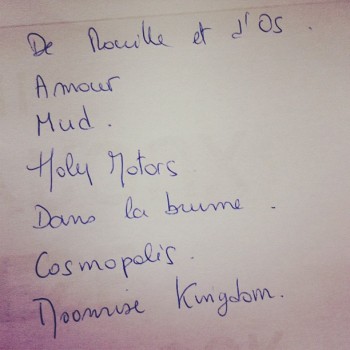 De Rouille et d'Os.
Amour
Mud.
Holy Motors
Dans la brume.
Cosmopolis.
Moonrise Kingdom.